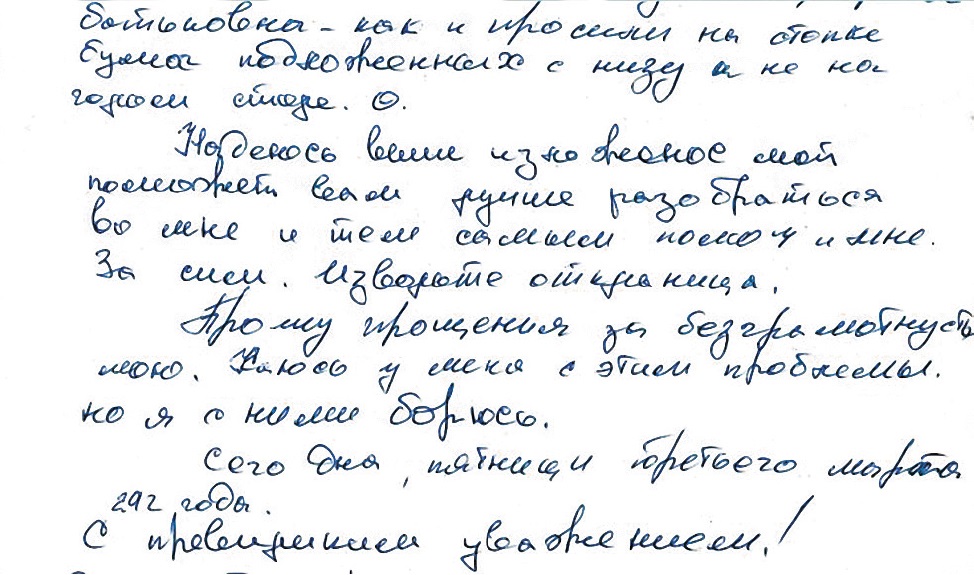 батьковна - как и просили на стопке
бумаг подложенных с низу а не на
голом столе. О.
Надеюсь выше изложеное мой
поможет вам лучше разобраться
во мне и тем самым помоч и мне.
За сим. Извольте откланица.
Прошу прощения за безграмотнусть
мою. Каюсь у меня с этим проблемы.
но я с ними борюсь.
Сего дна, пятници третьего марта
292 годы.
С превеликим уважением!